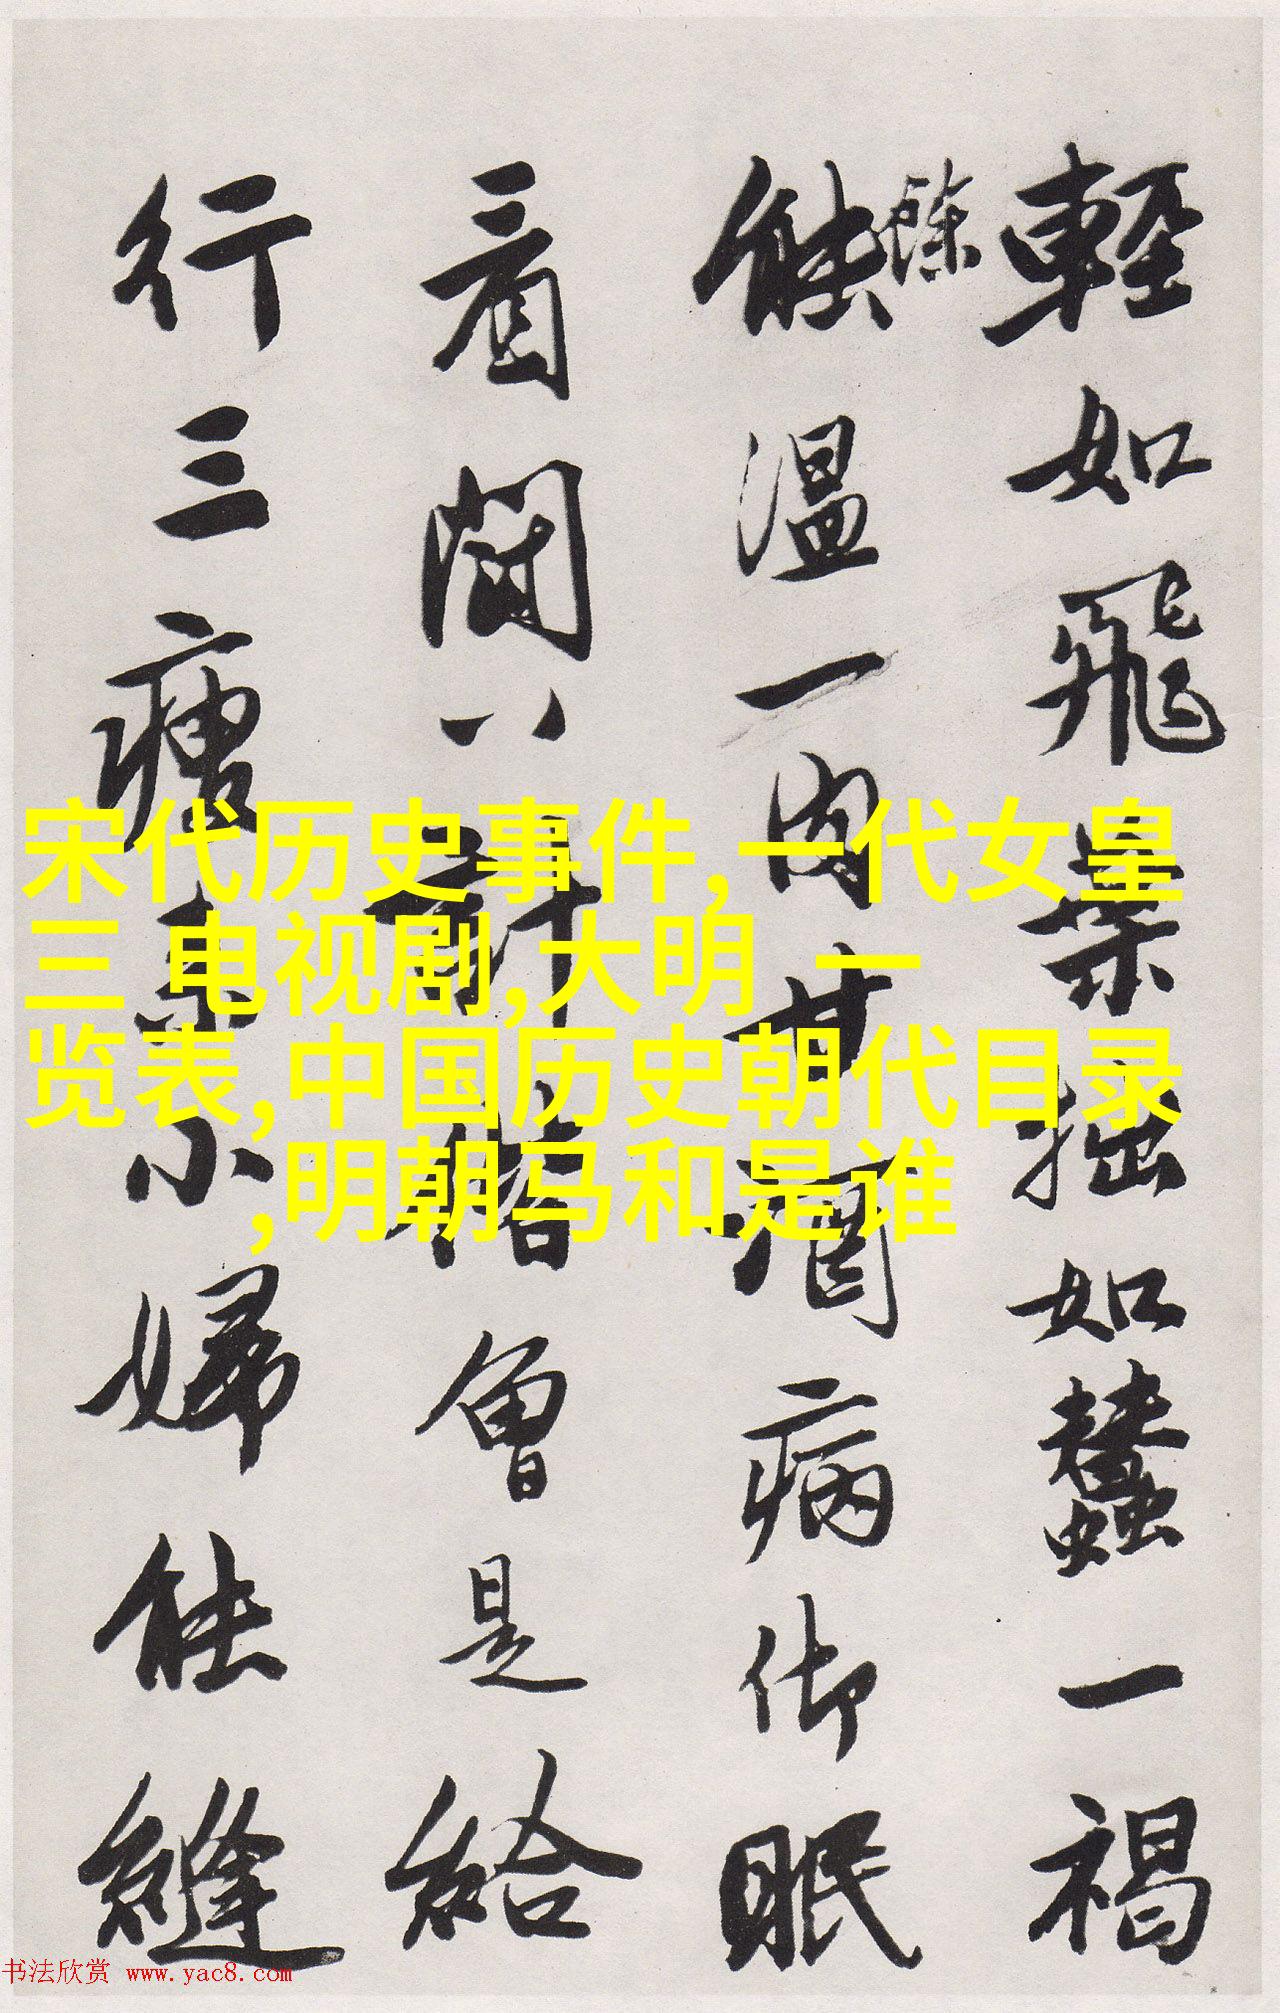 輕如飛葉拙如蠶一褐
餘
能溫一肉甘獨病仰眠
看閱八計
會是給
行三
小婦能縫
宋代历史事件,一代女皇
三 电视剧,大明 一
览表,中国历史朝代目录
,明朝马和是谁
书法欣赏 www.yac8.com